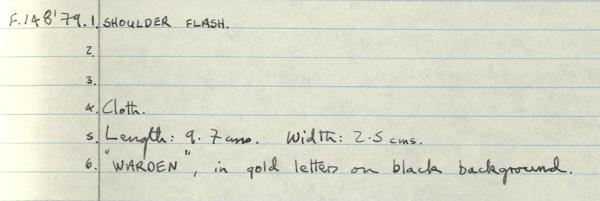 F.148'79.1. SHOULDER FLASH.
2.
3.
4. Cloth.
5. Length: 9.7cms. Width: 2.5 cms.
6. "WARDEN", in gold letters on black background.